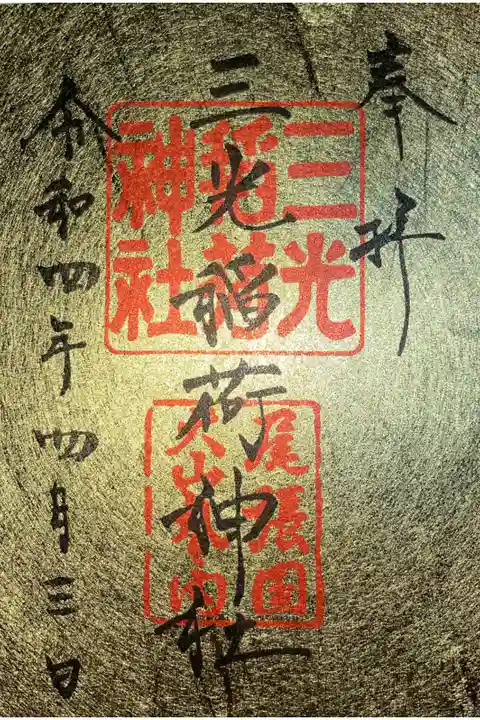 奉拝
三光稲荷神社
三光
稲荷
神社
尾張国
犬山城内
令和四年四月三日